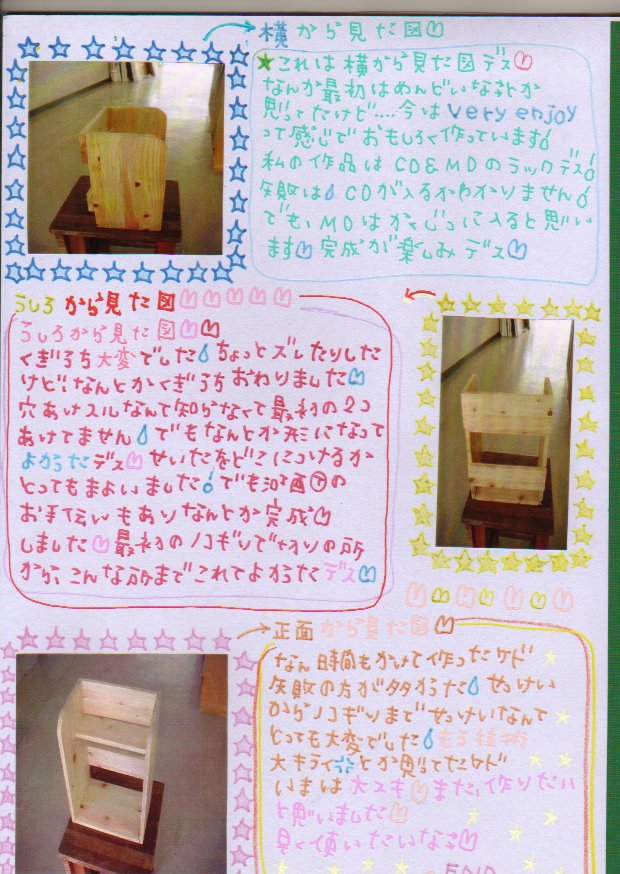 横から見た図
★これは横から見た図デス
なんか最初はめんどいなぁとか
思ってたけど....今はvery enjoy
って感じでおもしろく作っています!
私の作品はCD&MDのラックデス!
失敗はCDが入るかわかりません!
でも、MDはかくじつに入ると思い
ます 完成が楽しみデス
うしろから見た図
うしろから見た図
くぎうち大変でした ちょっとズレたりした
けど!なんとかくぎうちおわりました
穴あけスルなんて知らなくて最初の2つ
あけてません でもなんとか形になって
よかったデス せいたをどこにつけるか
とってもまよいました! でも
お手伝いもありなんとか完成
しました 最初のノコギリで切りの所
から、こんな所までこれてよかったデス
正面から見た図
なん時間もかけて作ったケド
失敗の方が多かった せっけい
からノコギリまでせっけいなんて
とっても大変でした もう技術
大キライとか思ってたケド
いまは大スキ また、作りたい
と思いました
早く使いたいなぁ
END